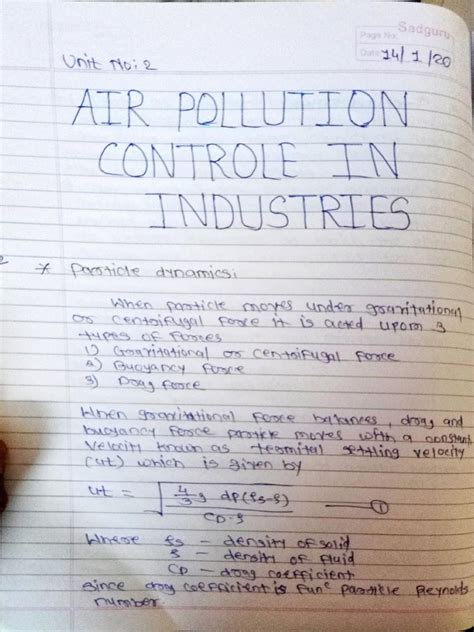 Sadguru
Page No.
Date 14/1/20
Unit No: 2
AIR POLLUTION
CONTROLE IN
INDUSTRIES
* Particle dynamics:
When particle moves under gravitational
or centrifugal force it is acted upom 3
types of forces
1) Gravitational or centrifugal force
2) Buoyancy force
3) Drag force
When gravitational force balances, drag and
buoyancy force particle moves with a constant
velocity known as terminal settling velocity
(ut) which is given by
ut = √(4/3 g dp(ρs-ρ) / CD·ρ) — ①
Where ρs – density of solid
ρ – density of fluid
CD – drag coefficient
since drag coefficient is funᶜ Particle Reynolds
number